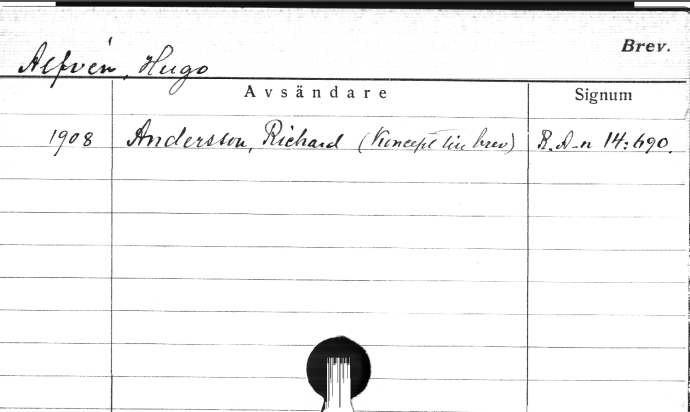 Brev.
Alfvén, Hugo
Avsändare Signum
1908 Andersson, Richard (Koncept till brev) R. A-n 14:690.